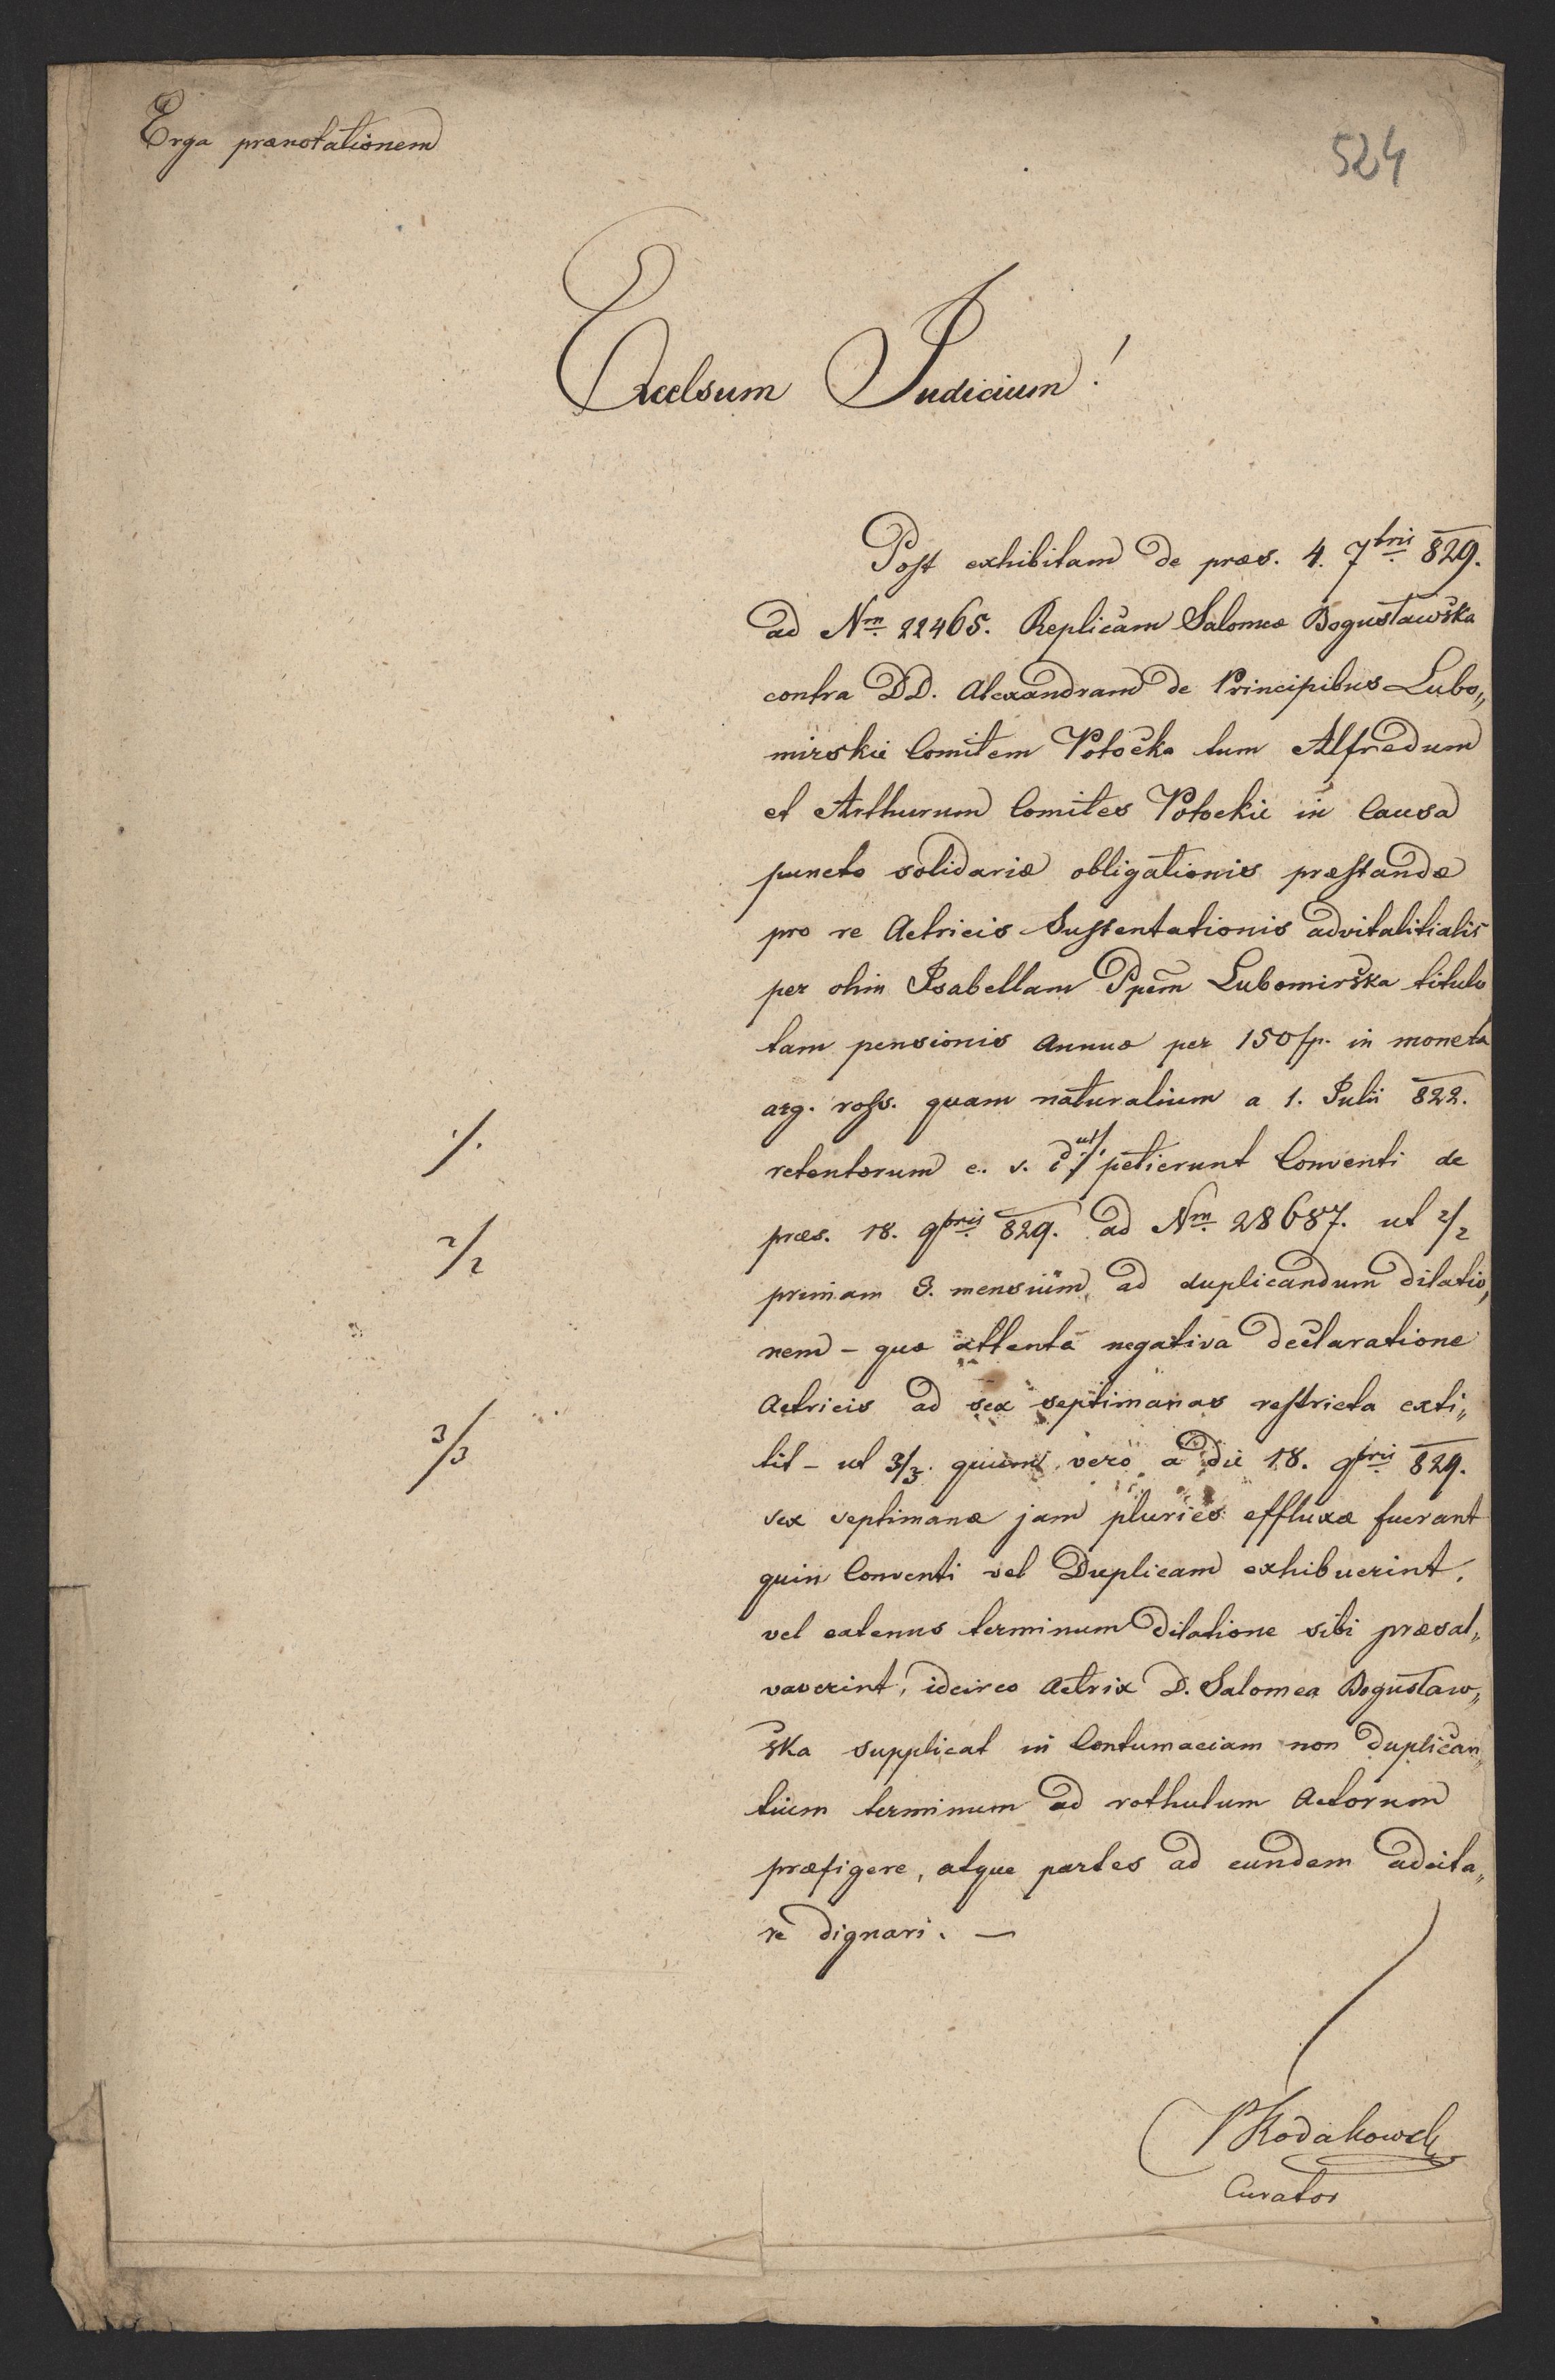 Erga prænotationem
524
Excelsum Judicium!
Post exhibitam de præs. 4. 7bris 829.
ad Nm 22465. Replicam Salomeæ Bogusławska
contra DD. Alexandram de Principibus Lubo„
mirskie Comitem Potocka tum Alfredum
et Arthurum Comites Potockie in Causa
puncto solidariæ obligationis præstandæ
pro re Actricis Sustentationis advitalitialis
per olim Isabellam Ppem Lubomirska titulo
tam pensionis annuæ per 150 fp. in moneta
arg. ross. quam naturalium a 1. Julii 822.
./. retentorum c. s. c. ut ./. petierunt Conventi de
2/2 præs. 18. 9bris 829. ad Nm 28687. ut 2/2
primam 3. mensium ad duplicandum dilatio„
nem – quæ attenta negativa declaratione
Actricis ad sex septimanas restricta exti„
3/3 tit – ut 3/3. quum vero a die 18. 9bris 829.
sex septimanæ jam pluries effluxæ fuerant
quin Conventi vel Duplicam exhibuerint,
vel eatenus terminum dilatione sibi præsal„
vaverint, idcirco Actrix D. Salomea Bogusław„
ska supplicat in Contumaciam non duplican„
tium terminum ad rothulum Actorum
præfigere, atque partes ad eundem adcita„
re dignari. —
Rodakowski
Curator